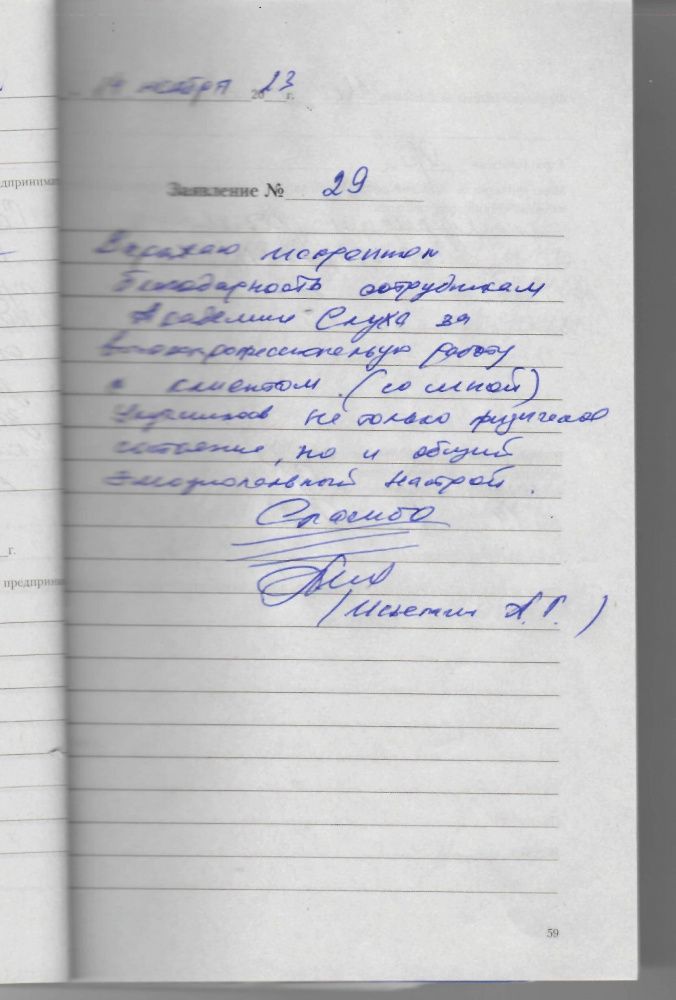 ноября 2023 г.
Заявление № 29
Выражаю искреннюю
благодарность сотрудникам
Академии Слуха за
высокопрофессиональную работу
с клиентом (со мной)
не только физическое
состояние, но и общий
эмоциональный настрой.
Спасибо
А.Г.)
59
едпринимат
г.
предприни